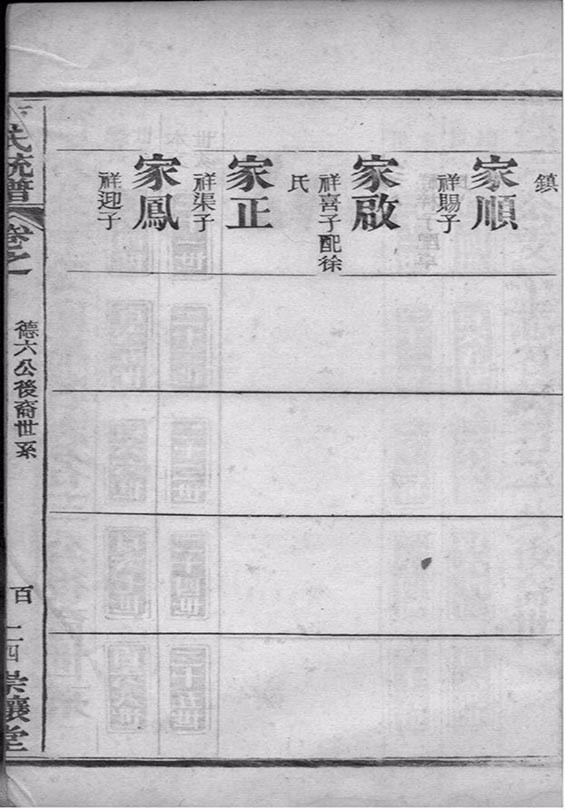 鎮
家順
祥賜子
家啟
祥喜子配徐
氏
家正
祥渠子
家鳳
祥迎子
氏統譜
卷之
德六公後裔世系
百
二四
崇讓堂